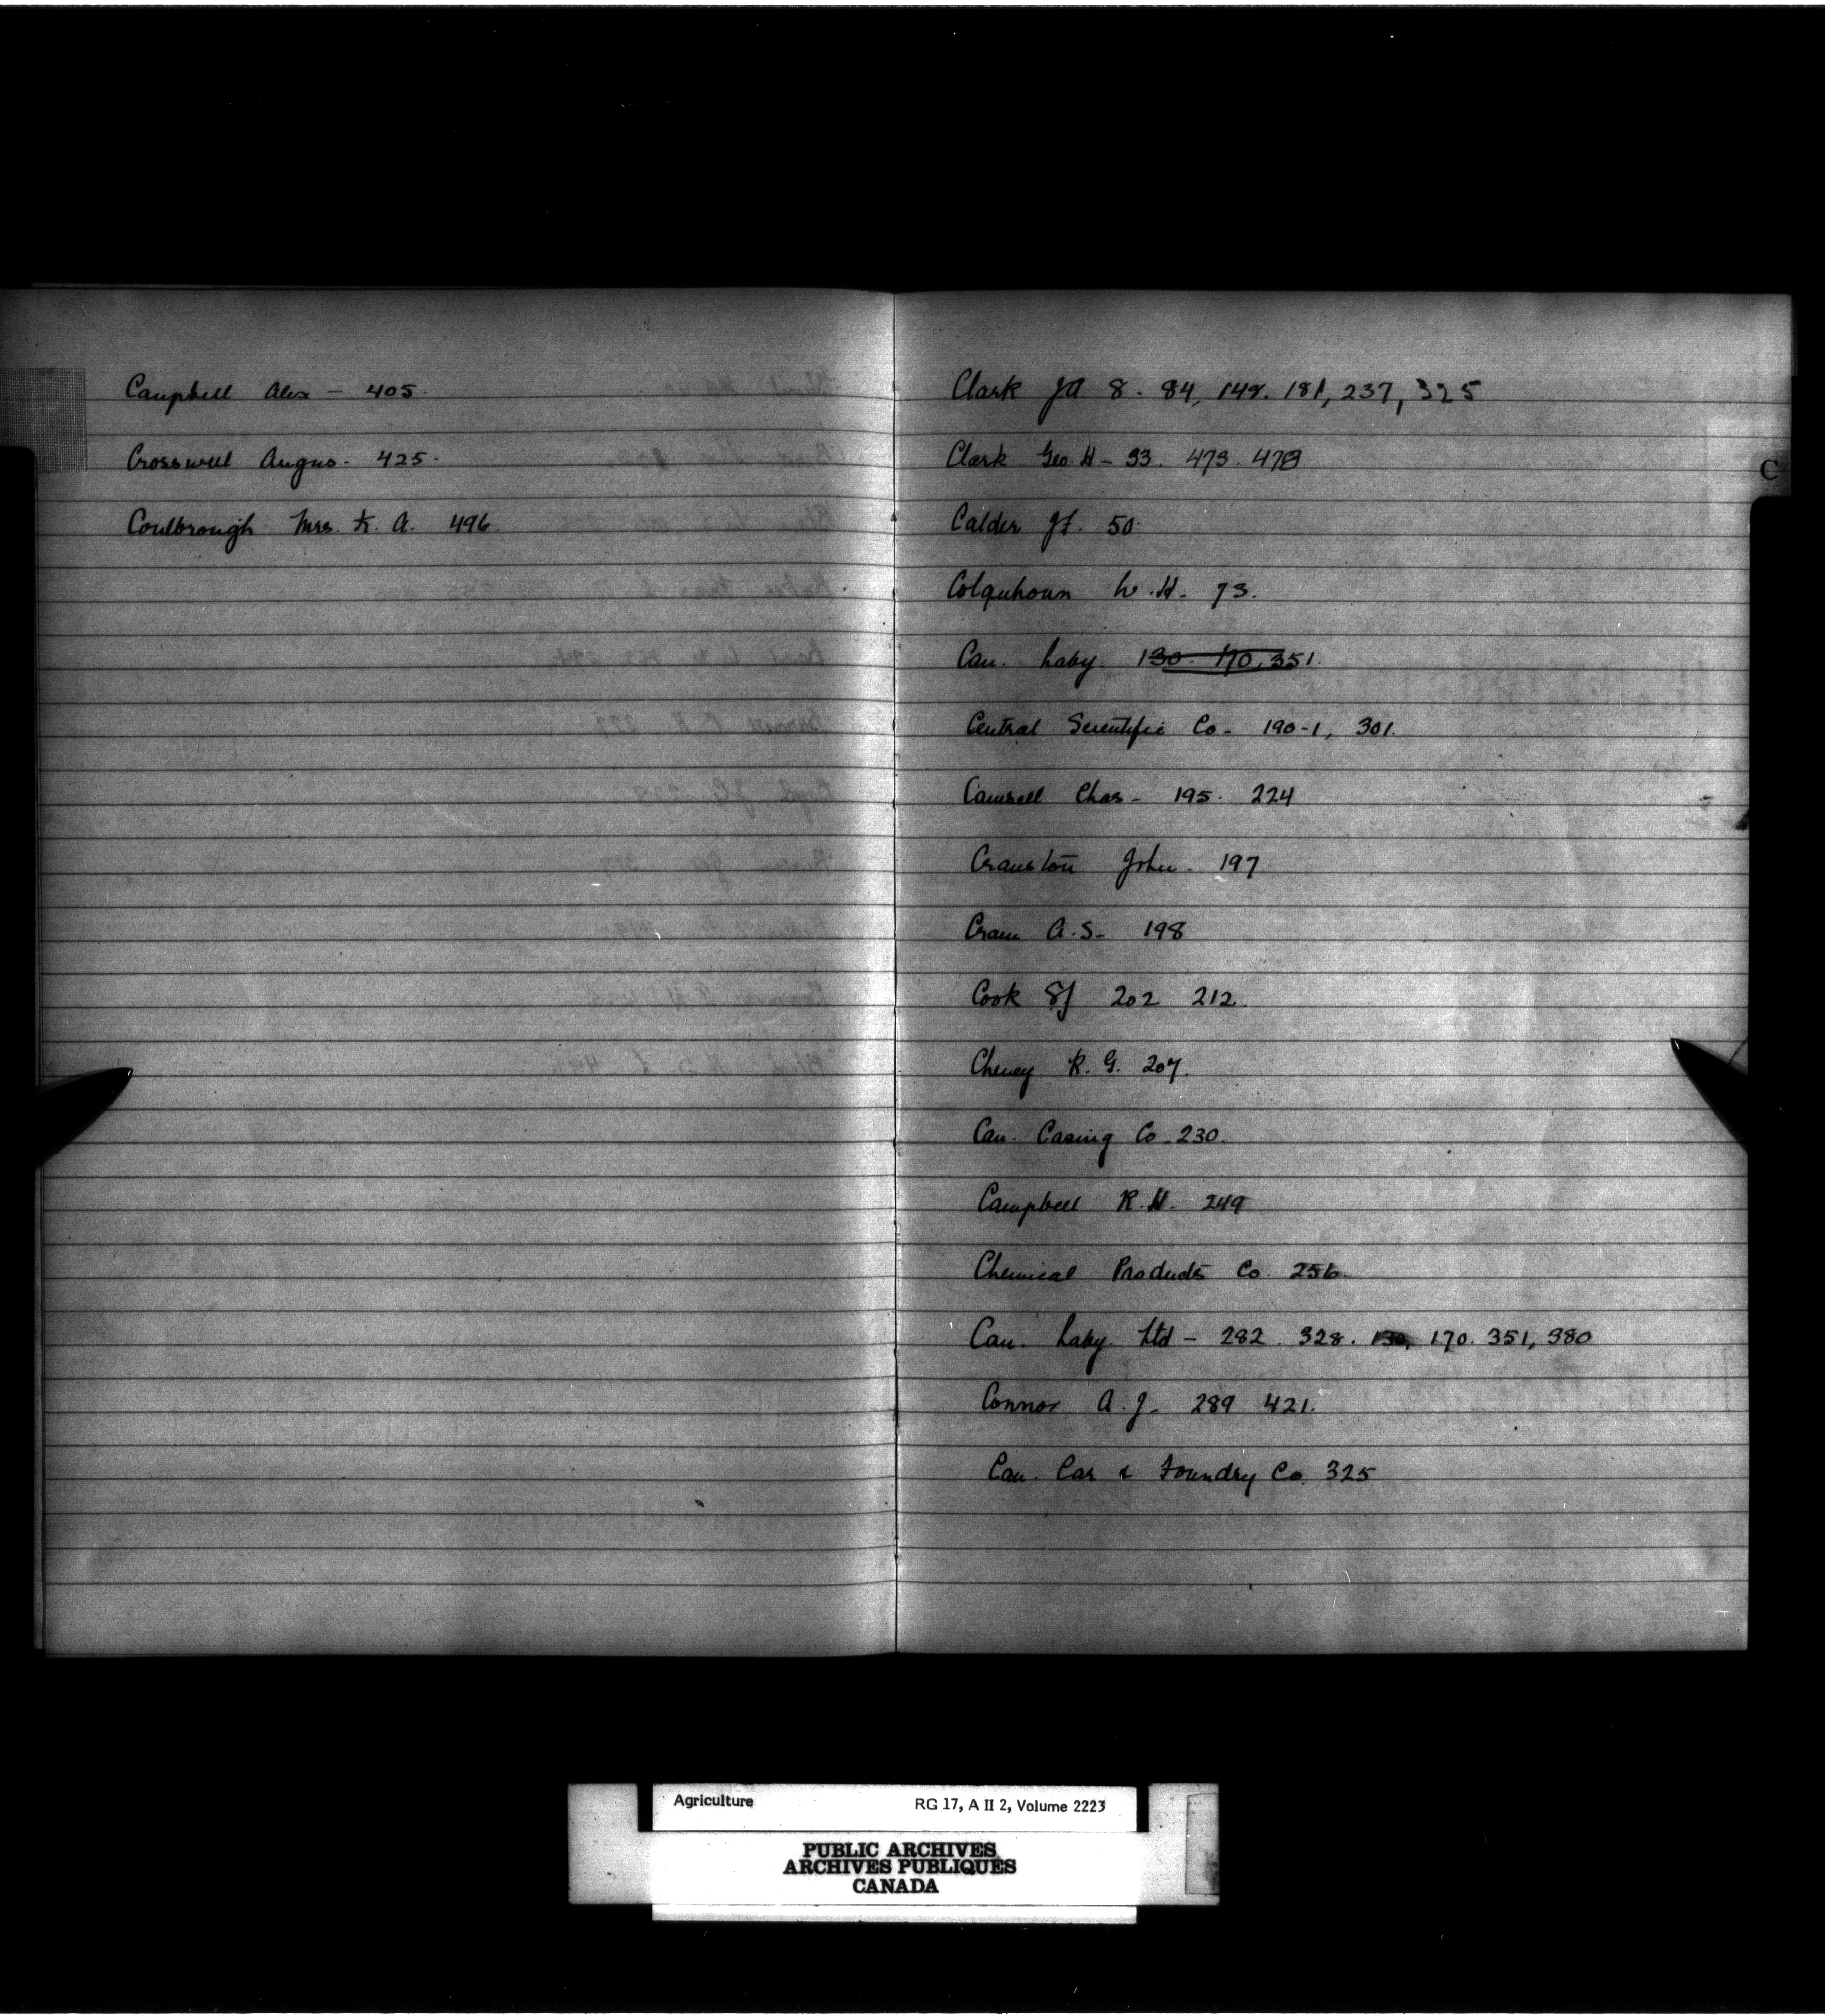 Campbell Alex - 405.
Crosswell Angus - 425.
Coulbrough Mrs. K. A. 496.
Clark J A 8. 84, 148. 181, 237, 325
Clark Geo. H - 33. 473. 478
C
Calder J F. 50.
Colquhoun W. H. 73.
Can. Laby. 130. 170, 351.
Central Scientific Co. 190-1, 301.
Camsell Chas - 195. 224
Cranston John. 197
Cram A. S - 198
Cook S J 202 212.
Cheney R. G. 207.
Can. Casing Co. 230.
Campbell R. H. 249
Chemical Products Co. 256
Can. Laby. Ltd - 282. 328. 130, 170. 351, 380
Connor A. J. 289 421.
Can. Car & Foundry Co. 325
Agriculture RG 17, A II 2, Volume 2223
PUBLIC ARCHIVES
ARCHIVES PUBLIQUES
CANADA